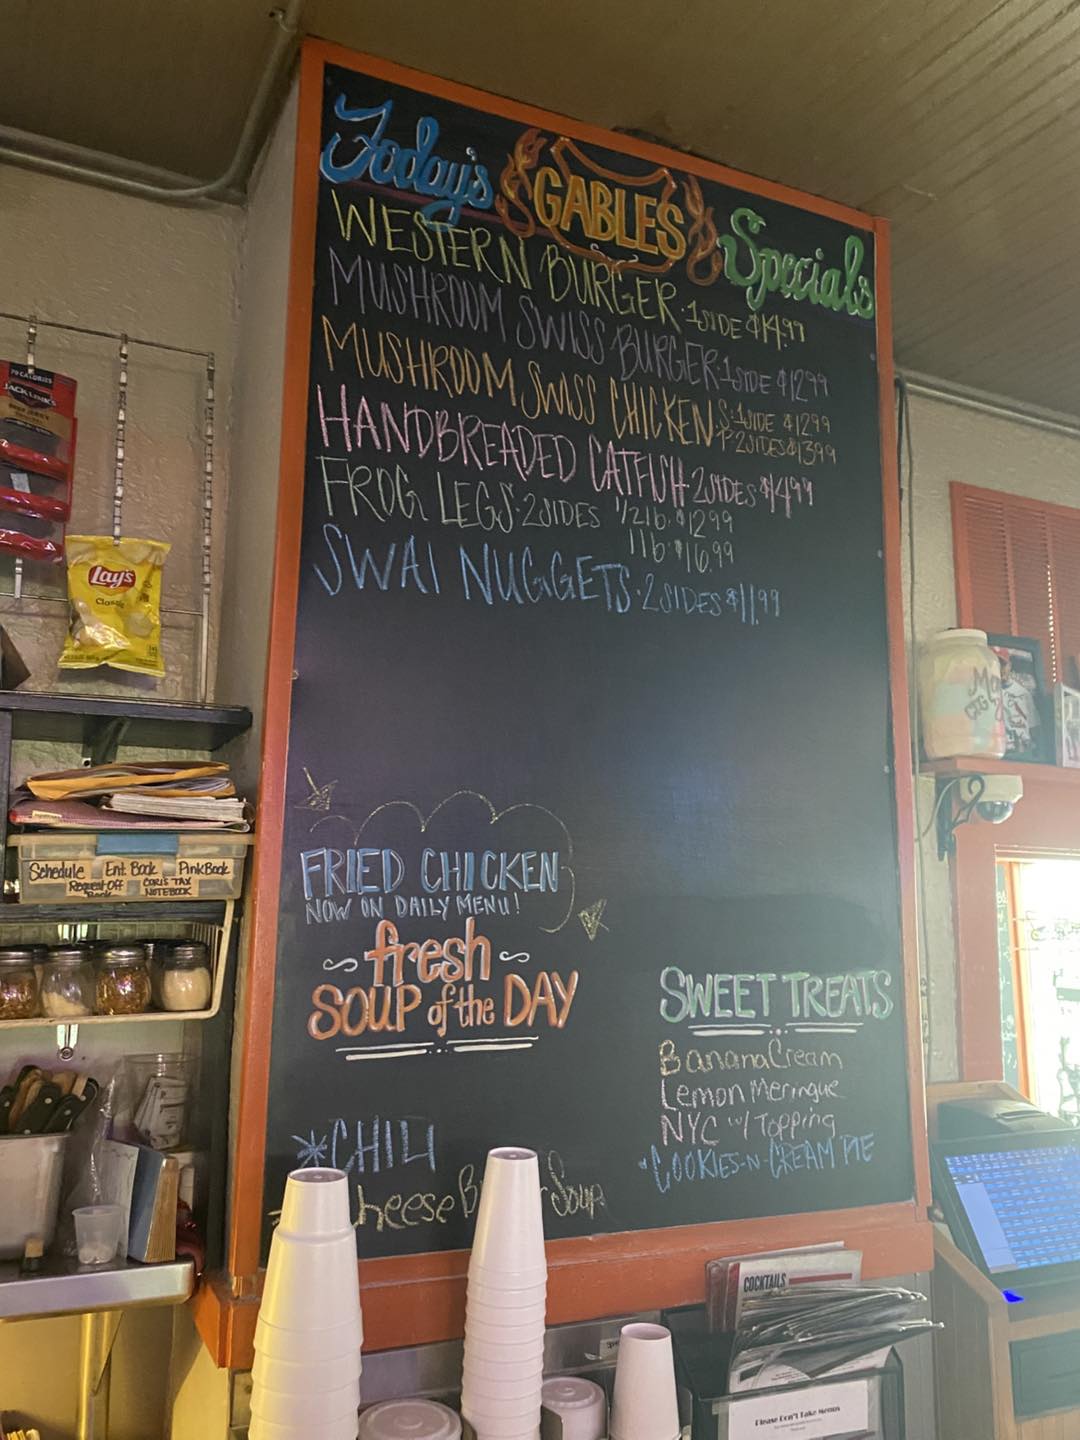 Today's GABLES Specials
WESTERN BURGER·1SIDE $14.99
MUSHROOM SWISS BURGER·1SIDE $12.99
MUSHROOM SWISS CHICKEN·S:1SIDE $12.99
P·2SIDES $13.99
HANDBREADED CATFISH·2SIDES $14.99
FROG LEGS·2SIDES 1/2lb·$12.99
1lb·$16.99
SWAI NUGGETS·2SIDES $11.99
FRIED CHICKEN
NOW ON DAILY MENU!
~ fresh ~
SOUP of the DAY
*CHILI
Cheese Soup
SWEET TREATS
Banana Cream
Lemon Meringue
NYC w/ Topping
·COOKIES-N-CREAM PIE
70 CALORIES
JACK LINK'S
Lay's
Classic
Schedule
Request Off
Book
Ent. Book
PinkBook
CORI'S TAX
NOTEBOOK
COCKTAILS
Please Don't Take Menus